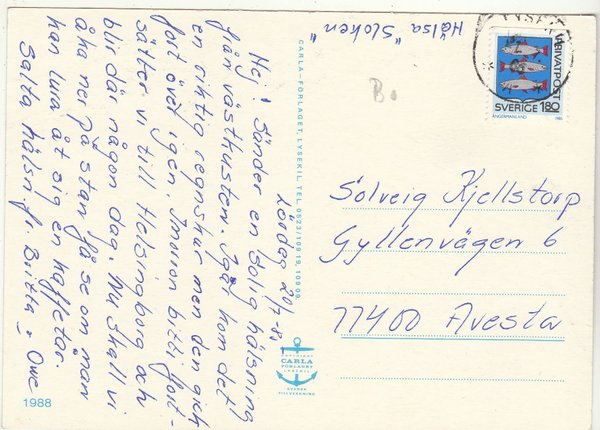 Hälsa "Sloken"
Lördag 20/7-85
Hej! Sänder en solig hälsning
från västkusten. Igår kom det
en riktig regnskur men den gick
fort över igen. Imorron bitti fort-
sätter vi till Helsingborg och
blir där någon dag. Nu skall vi
åka ner på stan få se om man
kan lura åt sig en kaffetår.
Salta hälsn fr. Britta o Owe
1988
CARLA-FÖRLAGET, LYSEKIL. TEL. 0523/109 19, 109 09.
COPYRIGHT
CARLA
FÖRLAGET
LYSEKIL
SVENSK
TILLVERKNING
LYSEKIL
PRIVATPOST
SVERIGE 180
ÅNGERMANLAND
1985
Bo
Solveig Kjellstorp
Gyllenvägen 6
77400 Avesta